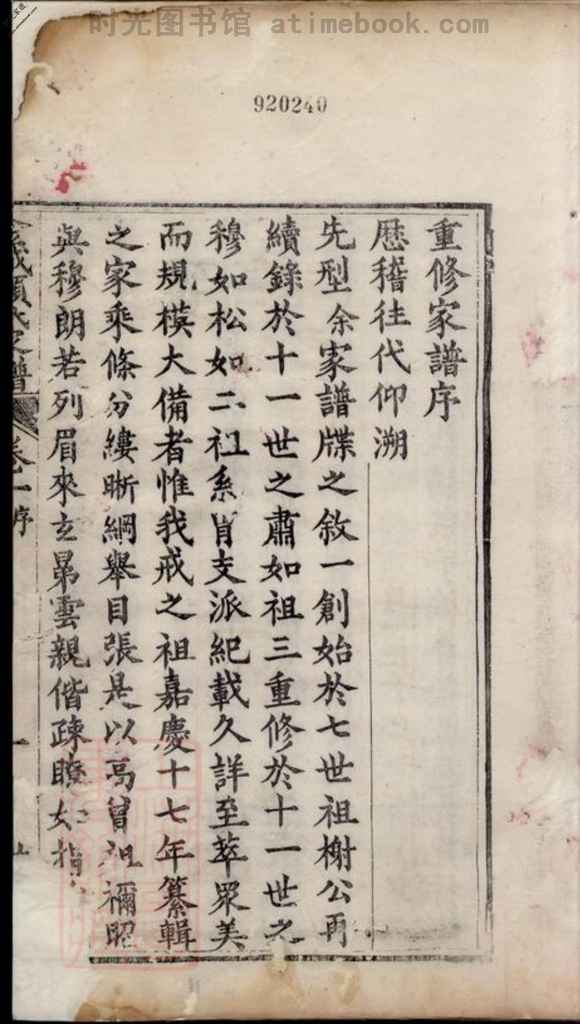 时光图书馆 atimebook.com
920240
重修家譜序
歷稽往代仰溯
先型余家譜牒之敘一創始於七世祖榭公再
續錄於十一世之肅如祖三重修於十一世之
穆如松如二祖系肖支派紀載久詳至萃眾美
而規模大備者惟我戒之祖嘉慶十七年纂輯
之家乘條分縷晰綱舉目張是以高曾祖禰昭
與穆朗若列眉來玄昴雲親偕疎瞭如指
氏家譜 卷一序 一